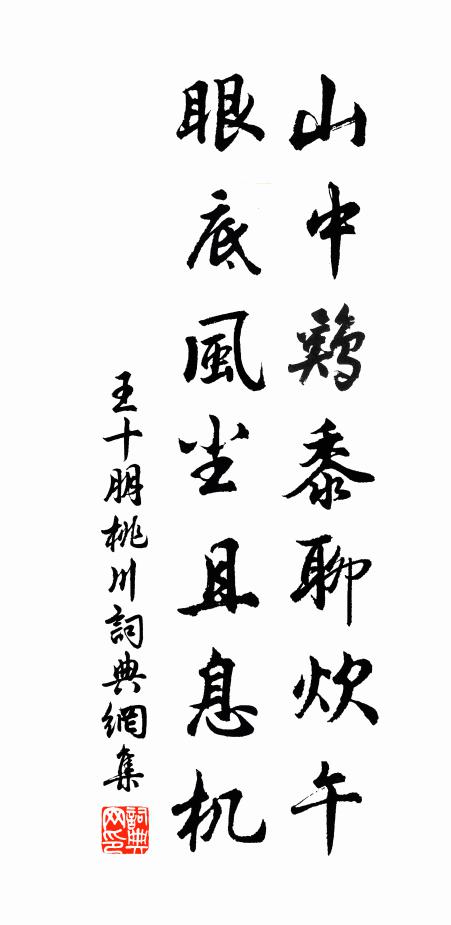 山中鷄黍聊炊午
眼底風尘且息机
王十朋桃川詞典網集
詞典网印